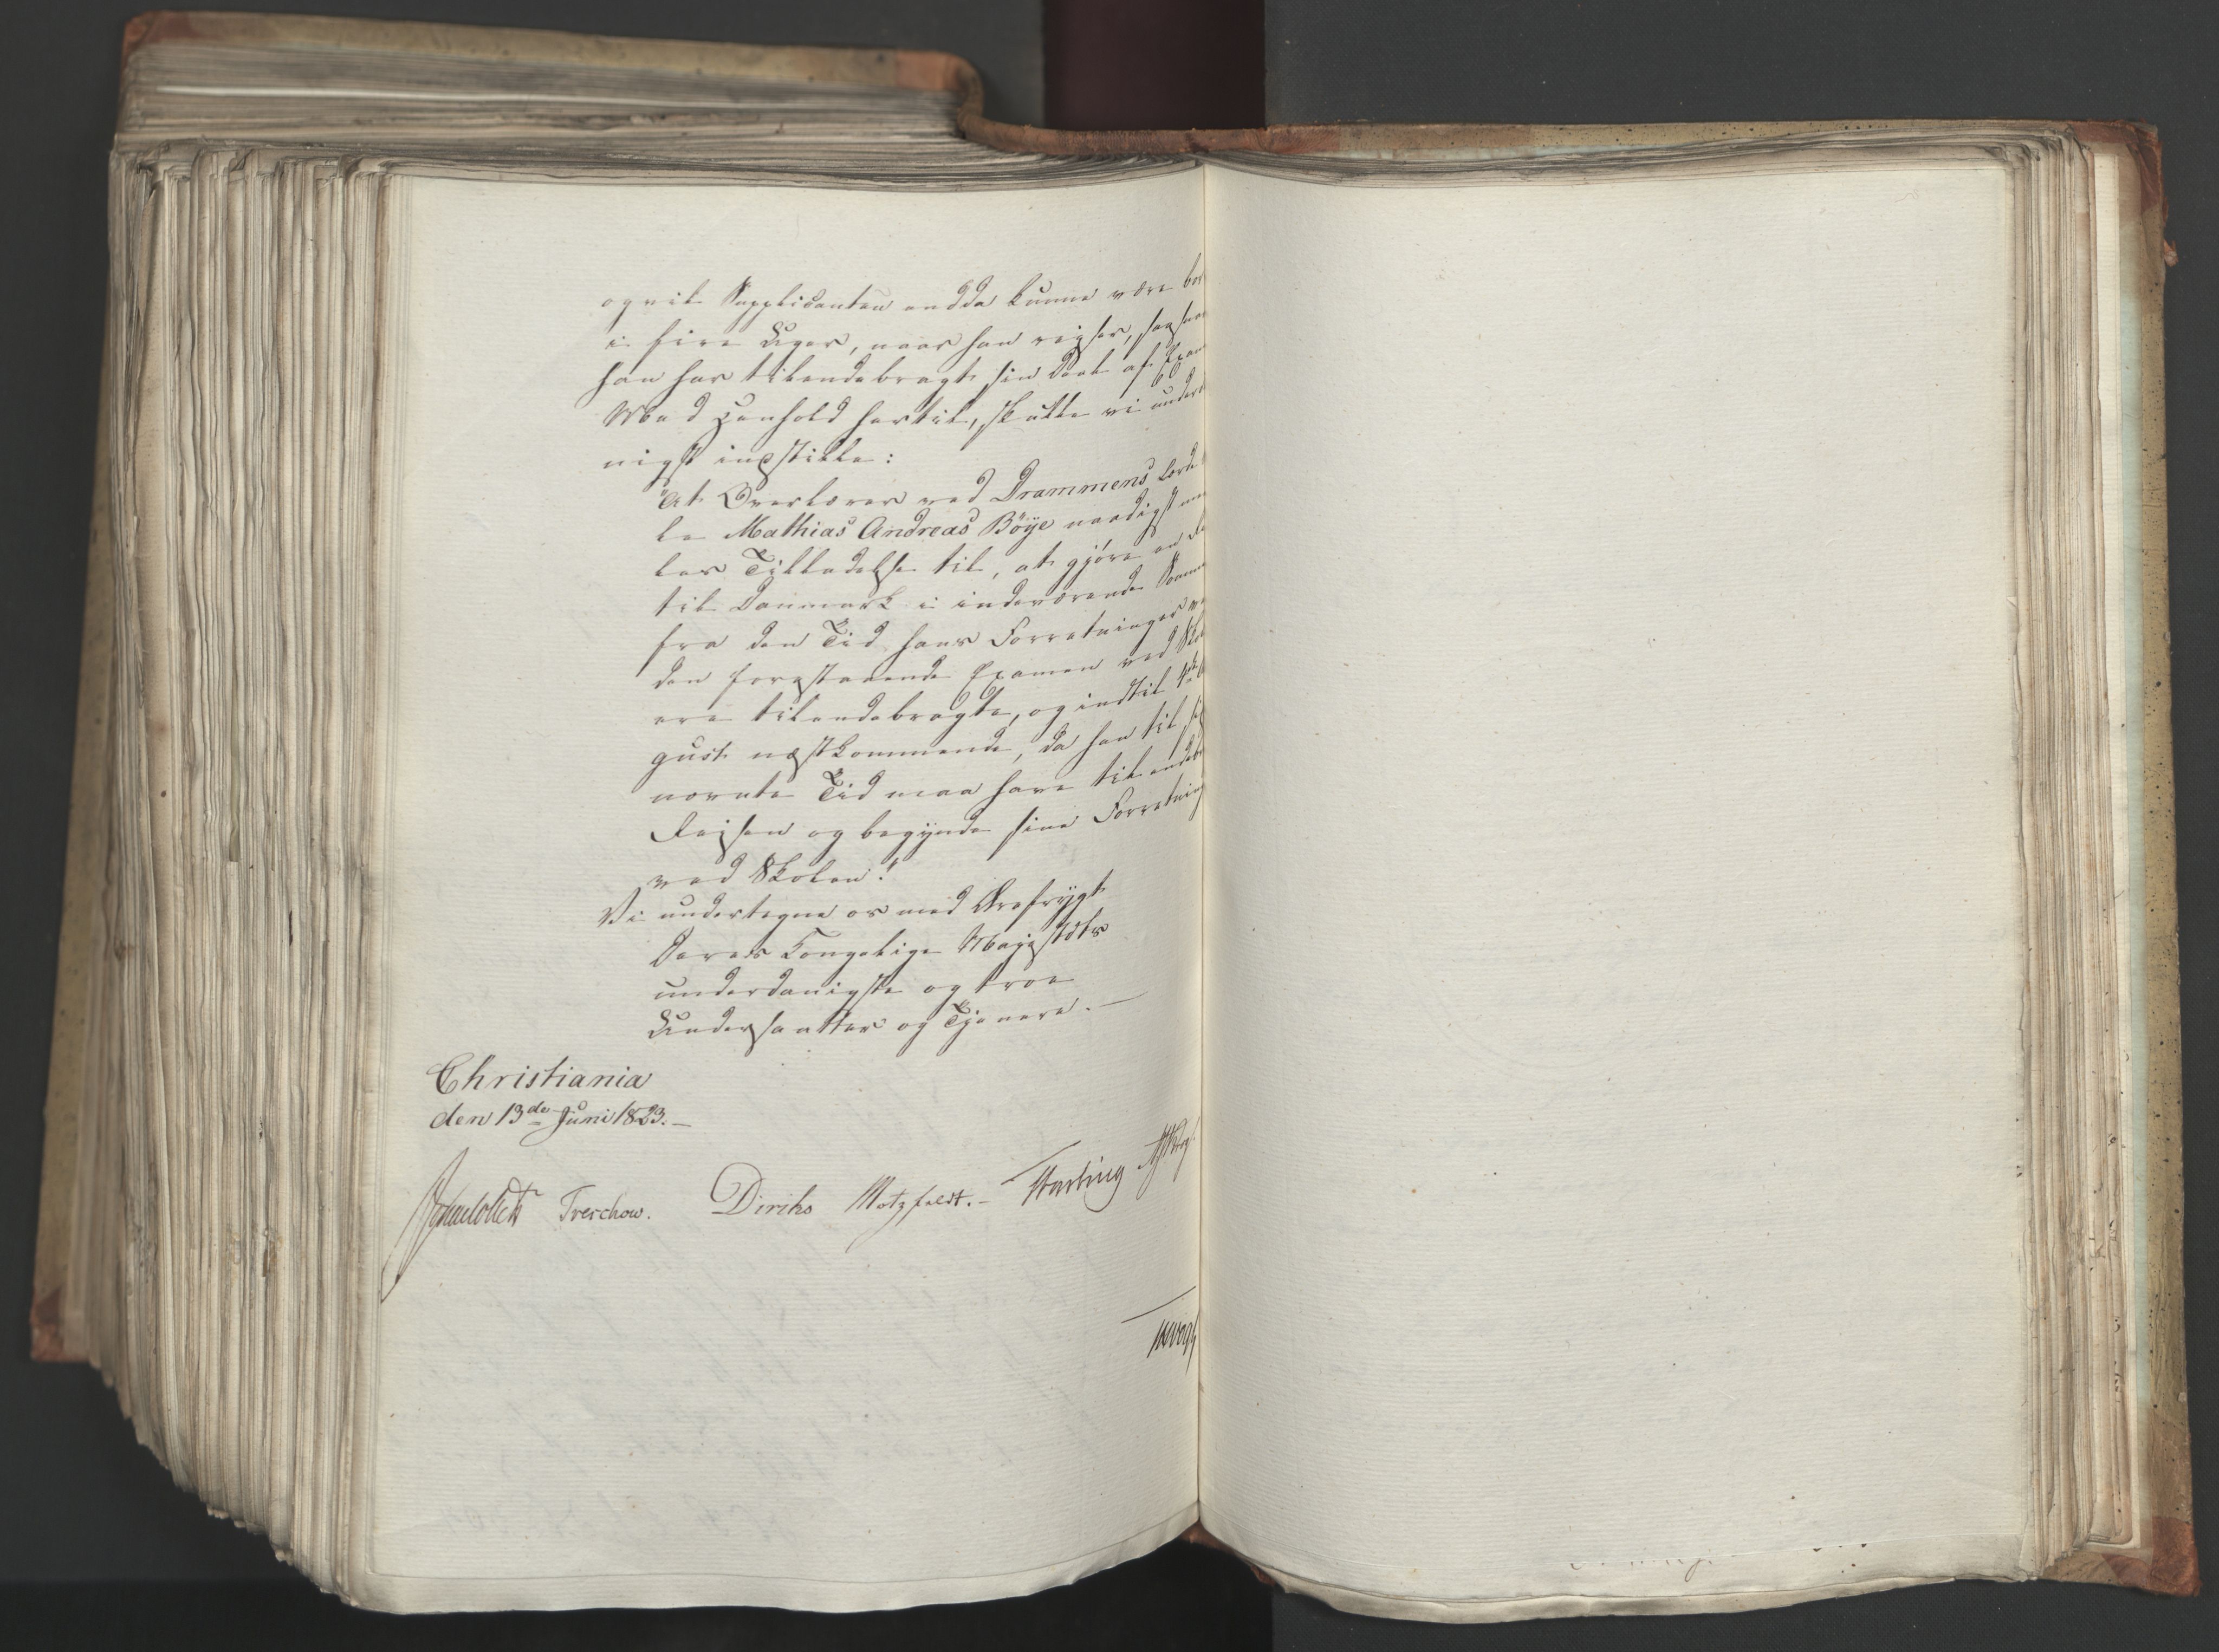 og vil Supplicanten endda kunne være bor
i fire Uger, naar han reiser, saasnar
han har tilendebragt sin Deel af Exam
Med Henhold hertil, skulle vi underd
nigst indstille:
"At Overlærer ved Drammens lærde
le Mathias Andreas Böÿe naadigst me
les Tilladelse til, at gjöre en Re
til Danmark i indeværende Somme
fra den Tid hans Forretninger ve
den forestaaende Examen ved Skol
ere tilendebragte, og indtil 1ste
gust næstkommende, da han til
nævnte Tid maa have tilendebr
Reisen og begÿnde sine Forretning
ved Skolen."
Vi undertegne os med Ærefrÿgt
Deres Kongelige Majestæts
underdanigste og troe
Undersaatter og Tjenere. —
Christiania
den 13de Juni 1823. —
Treschow. Diriks Motzfeldt. —